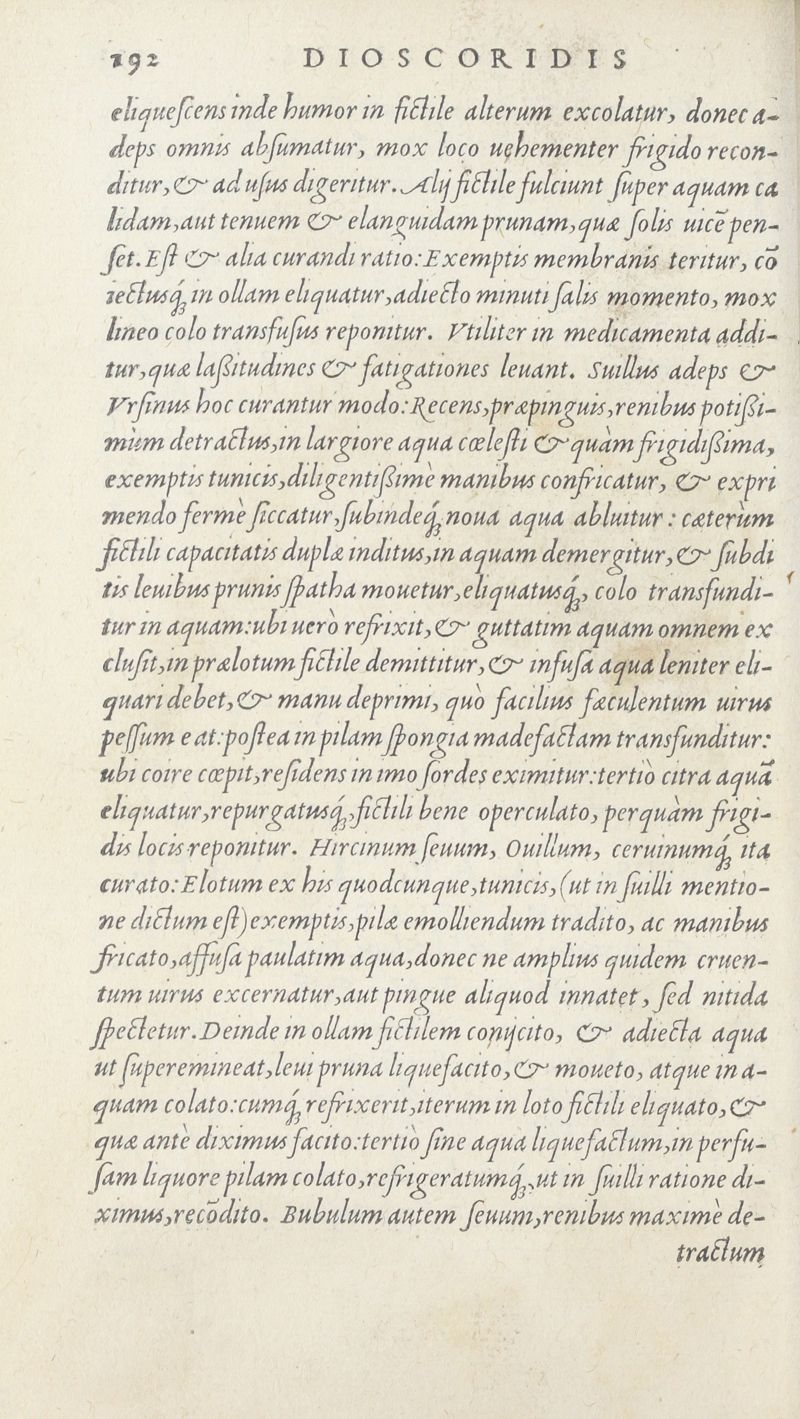 192 DIOSCORIDIS
eliqueſcens inde humor in fictile alterum excolatur, donec a-
deps omnis abſumatur, mox loco uehementer frigido recon-
ditur, & ad uſus digeritur. Alij fictile fulciunt ſuper aquam ca
lidam, aut tenuem & elanguidam prunam, quæ ſolis uicē pen-
ſet. Eſt & alia curandi ratio: Exemptis membranis teritur, cō
iectusq́; in ollam eliquatur, adiecto minuti ſalis momento, mox
lineo colo transfuſus reponitur. Vtiliter in medicamenta addi-
tur, quæ laßitudines & fatigationes leuant. Suillus adeps &
Vrſinus hoc curantur modo: Recens, præpinguis, renibus potißi-
mùm detractus, in largiore aqua cœleſti & quàm frigidißima,
exemptis tunicis, diligentißimè manibus confricatur, & expri
mendo fermè ſiccatur, ſubindeq́; noua aqua abluitur: cæterùm
fictili capacitatis duplæ inditus, in aquam demergitur, & ſubdi
tis leuibus prunis ſpatha mouetur, eliquatusq́;, colo transfundi-
tur in aquam: ubi uerò refrixit, & guttatim aquam omnem ex
cluſit, in prælotum fictile demittitur, & infuſa aqua leniter eli-
quari debet, & manu deprimi, quò facilius fæculentum uirus
peſſum eat: poſtea in pilam ſpongia madefactam transfunditur:
ubi coire cœpit, reſidens in imo ſordes eximitur: tertiò citra aquā
eliquatur, repurgatusq́;, fictili bene operculato, perquàm frigi-
dis locis reponitur. Hircinum ſeuum, Ouillum, ceruinumq́; ita
curato: Elotum ex his quodcunque, tunicis, (ut in ſuilli mentio-
ne dictum eſt) exemptis, pilæ emolliendum tradito, ac manibus
fricato, affuſa paulatim aqua, donec ne amplius quidem cruen-
tum uirus excernatur, aut pingue aliquod innatet, ſed nitida
ſpectetur. Deinde in ollam fictilem conijcito, & adiecta aqua
ut ſuperemineat, leui pruna liquefacito, & moueto, atque in a-
quam colato: cumq́; refrixerit, iterum in loto fictili eliquato, &
quæ antè diximus facito: tertiò ſine aqua liquefactum, in perfu-
ſam liquore pilam colato, refrigeratumq́;, ut in ſuilli ratione di-
ximus, recōdito. Bubulum autem ſeuum, renibus maximè de-
tractum